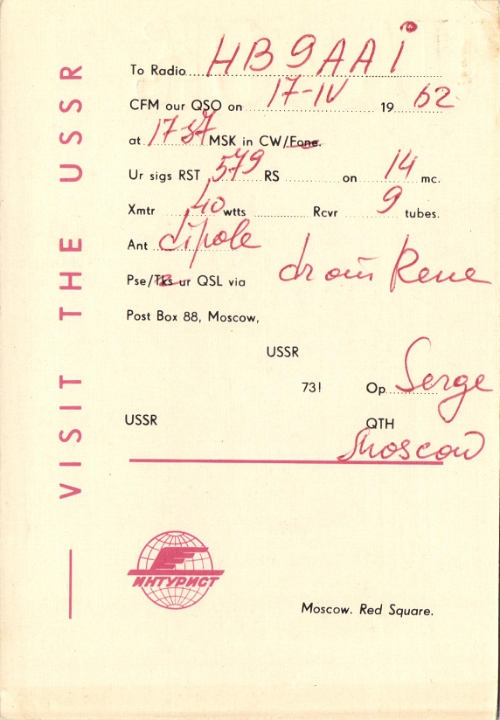 VISIT THE USSR
To Radio HB9AAI
CFM our QSO on 17-IV 1962
at 1737 MSK in CW/Fone.
Ur sigs RST 579 RS on 14 mc.
Xmtr 40 wtts Rcvr 9 tubes.
Ant dipole
Pse/Tks ur QSL via dr om Rene
Post Box 88, Moscow,
USSR
731 Op Serge
USSR QTH
Moscow
ИНТУРИСТ
Moscow. Red Square.